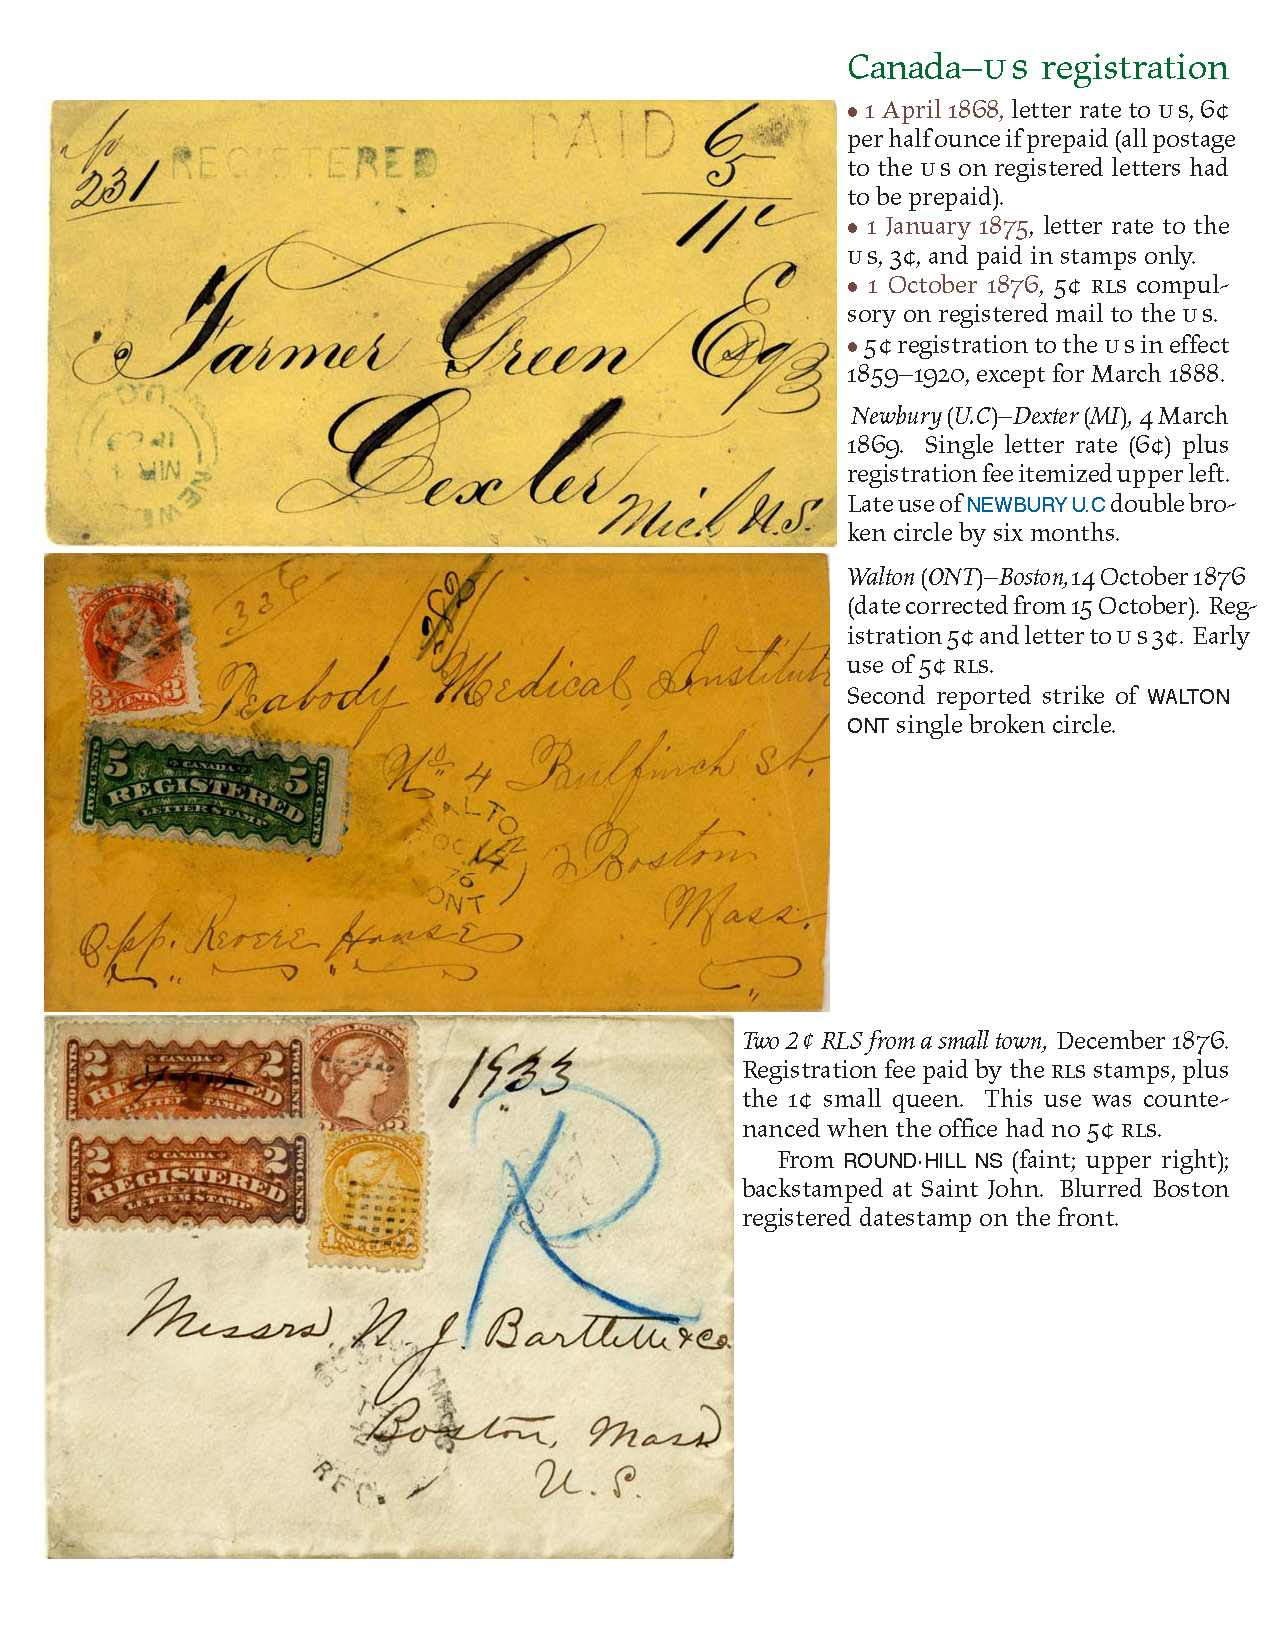 Canada–US registration
• 1 April 1868, letter rate to US, 6¢
per half ounce if prepaid (all postage
to the US on registered letters had
to be prepaid).
• 1 January 1875, letter rate to the
US, 3¢, and paid in stamps only.
• 1 October 1876, 5¢ RLS compul-
sory on registered mail to the US.
• 5¢ registration to the US in effect
1859–1920, except for March 1888.
231
REGISTERED
PAID
6
5
11c
Farmer Green Esq
Dexter
Mich. U.S.
Newbury (U.C)–Dexter (MI), 4 March
1869. Single letter rate (6¢) plus
registration fee itemized upper left.
Late use of NEWBURY U.C double bro-
ken circle by six months.
CANADA POSTAGE
3 CENTS 3
336
282
Peabody Medical Institute
No. 4 Bulfinch St.
Boston
Mass.
Opp. Revere House
CANADA
5 REGISTERED 5
LETTER STAMP
FIVE CENTS
FIVE CENTS
WALTON
OC 14
76
ONT
Walton (ONT)–Boston, 14 October 1876
(date corrected from 15 October). Reg-
istration 5¢ and letter to US 3¢. Early
use of 5¢ RLS.
Second reported strike of WALTON
ONT single broken circle.
CANADA
2 REGISTERED 2
LETTER STAMP
TWO CENTS
TWO CENTS
CANADA POSTAGE
CANADA
2 REGISTERED 2
LETTER STAMP
TWO CENTS
TWO CENTS
CANADA POSTAGE
1 ONE CENT 1
1933
R
Messrs. N. J. Bartlett & Co.
Boston, Mass
U. S.
BOSTON MASS
REG.
Two 2¢ RLS from a small town, December 1876.
Registration fee paid by the RLS stamps, plus
the 1¢ small queen. This use was counte-
nanced when the office had no 5¢ RLS.
From ROUND·HILL NS (faint; upper right);
backstamped at Saint John. Blurred Boston
registered datestamp on the front.